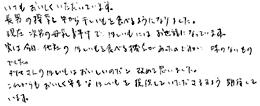 いつもおいしくいただいています。
長男の授業中から干しいもを食べるようになりました。
現在 次男の母乳育中で ほしいもには お世話になっています。
実は今回、他社の ほしいもを食べる機会があったのですが 味のないもの
でした。
のほしいもはおいしいのだと 改めて思いました。
これからもおいしく安全な ほしいもを 提供していただけるよう 期待して
います。